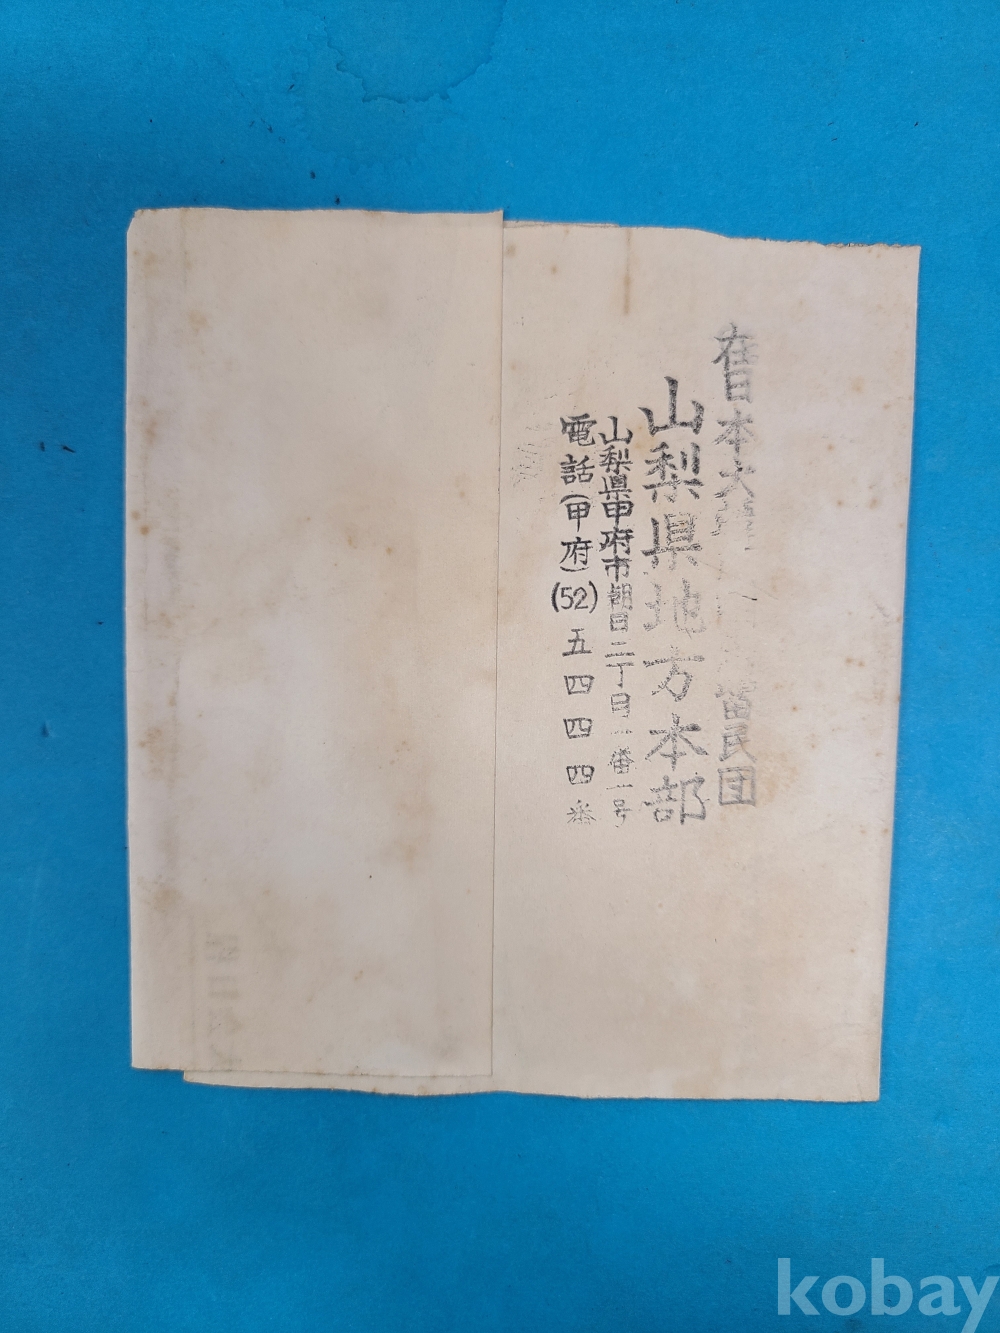 在日本大韓 留民団
山梨県地方本部
山梨県甲府市朝日二丁目一番一号
電話(甲府)(52)五四四四番
kobay